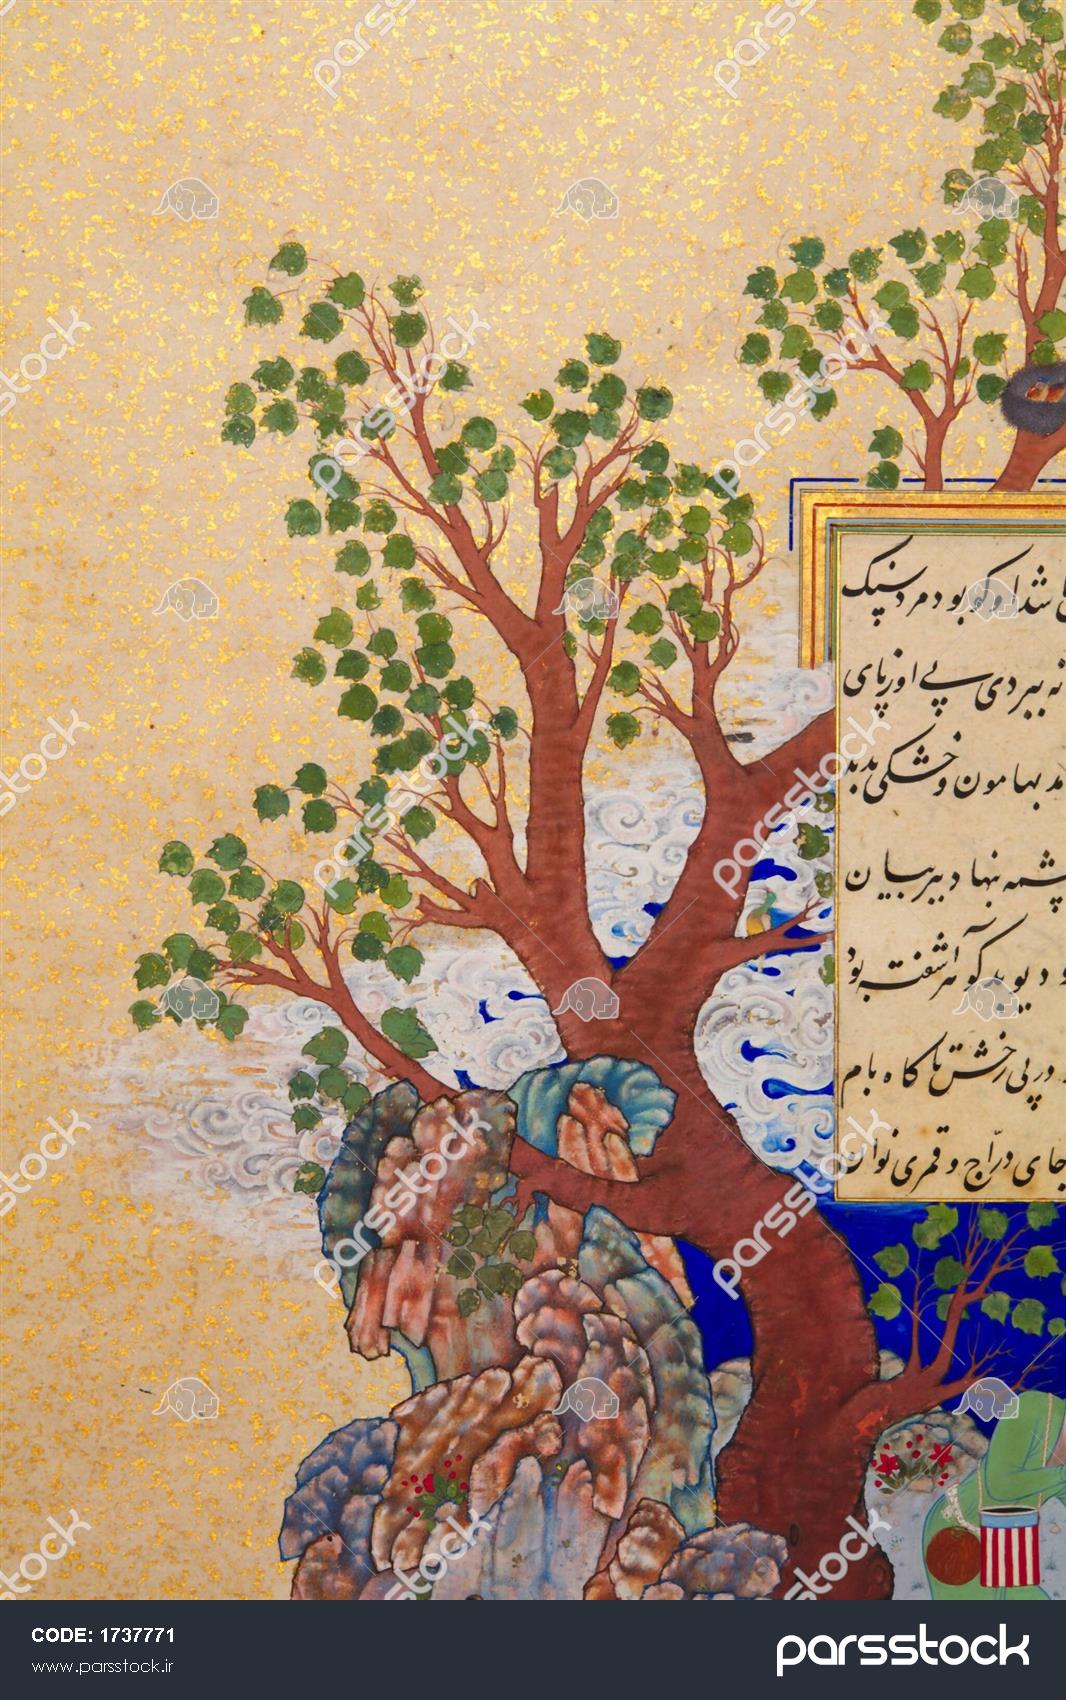 شد او کو بود مرد سنگ
نه ببر دی پی اوز پای
مد بهامون و خشکی بدید
چشمه نهاد ببر بیان
و دیو بد کو آمد آشفته بود
در پی رخش تا گاه بام
جای درّاج و قمری نوان
parsstock
CODE: 1737771
www.parsstock.ir
parsstock